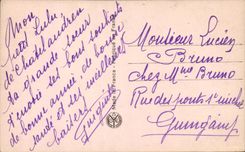 Mon
petit Lulu
de Châtelaudren
ta grande sœur
t'envoie ses bons souhaits
de bonne année de bonne
santé et ses meilleurs
baisers
Monsieur Lucien
Bruno
chez Mme Bruno
Rue des ponts St Michel
Guingamp